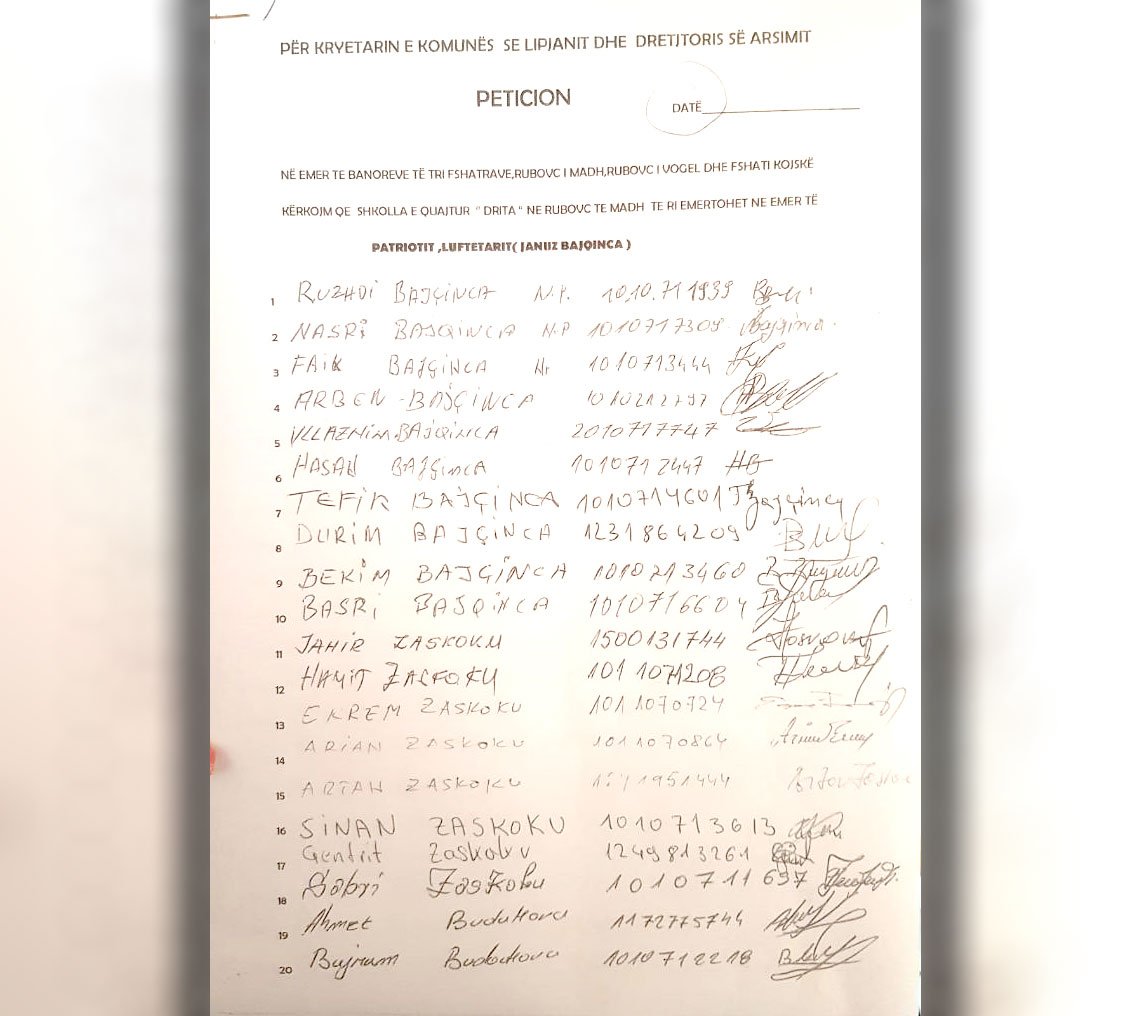 PËR KRYETARIN E KOMUNËS SE LIPJANIT DHE DRETJTORIS SË ARSIMIT
PETICION
DATË
NË EMER TE BANOREVE TË TRI FSHATRAVE,RUBOVC I MADH,RUBOVC I VOGEL DHE FSHATI KOJSKË
KËRKOJM QE SHKOLLA E QUAJTUR " DRITA " NE RUBOVC TE MADH TE RI EMERTOHET NE EMER TË
PATRIOTIT ,LUFTETARIT( JANUZ BAJQINCA )
1 RUZHDI BAJÇINCA N.P. 1010.711939
2 NASRi BAJQiNCA N.P 1010717309 Bajqinca
3 FAIK BAJÇiNCA Nr 1010713444
4 ARBEN-BAJÇiNCA 1010212797
5 VLLAZNiM.BAJQiNCA 2010717747
6 HASAN BAJÇinCA 1010712447 HB
7 TEFIK BAJÇiNCA 1010714601 Bajçinca
8 DURiM BAJÇiNCA 1231864209
9 BEKIM BAJÇiNCA 1010213460
10 BASRi BAJQiNCA 1010716604
11 JAHIR ZASKOKU 1500131744
12 HAMIT ZASKOKU 1011071208
13 EKREM ZASKOKU 1011070724
14 ARiAN ZASKOKU 1011070864
15 ARTAN ZASKOKU
16 SiNAN ZASKOKU 1010713613
17 Gentrit Zaskoku 1249813261
18 Sabri Zaskoku 1010711697
19 Ahmet Budakova 1172775744
20 Bajram Budakova 1010712218